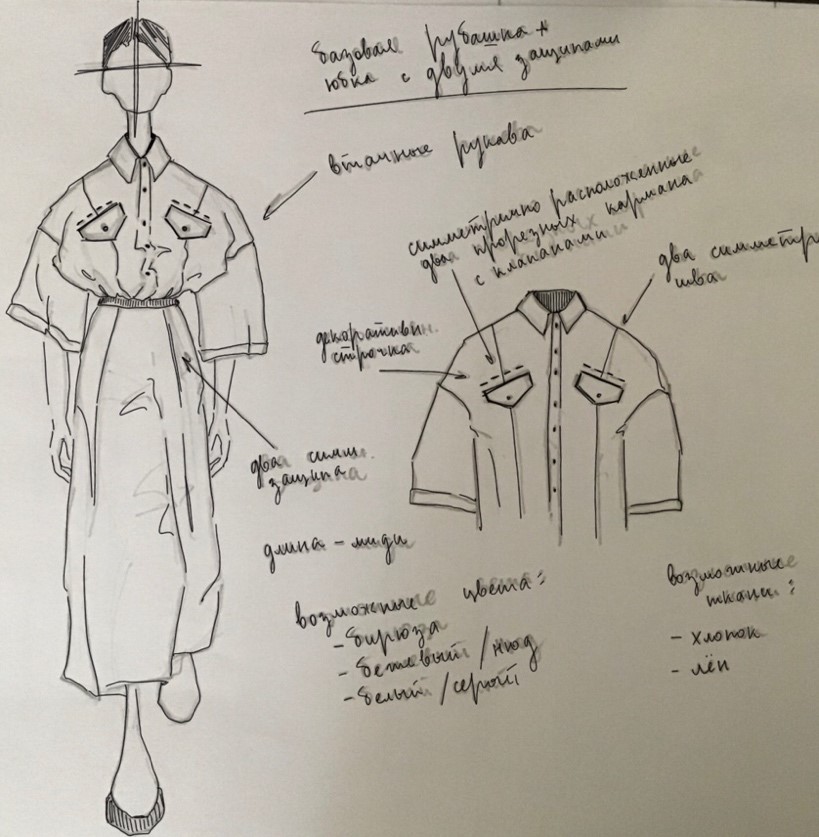 базовая рубашка +
юбка с двумя защипами
втачные рукава
симметрично расположенные
два прорезных кармана
с клапанами
два симметр
шва
декоративн.
строчка
два симм.
защипа
длина – миди
возможные цвета:
- бирюза
- бежевый / нюд
- белый / серый
возможные
ткани:
- хлопок
- лён